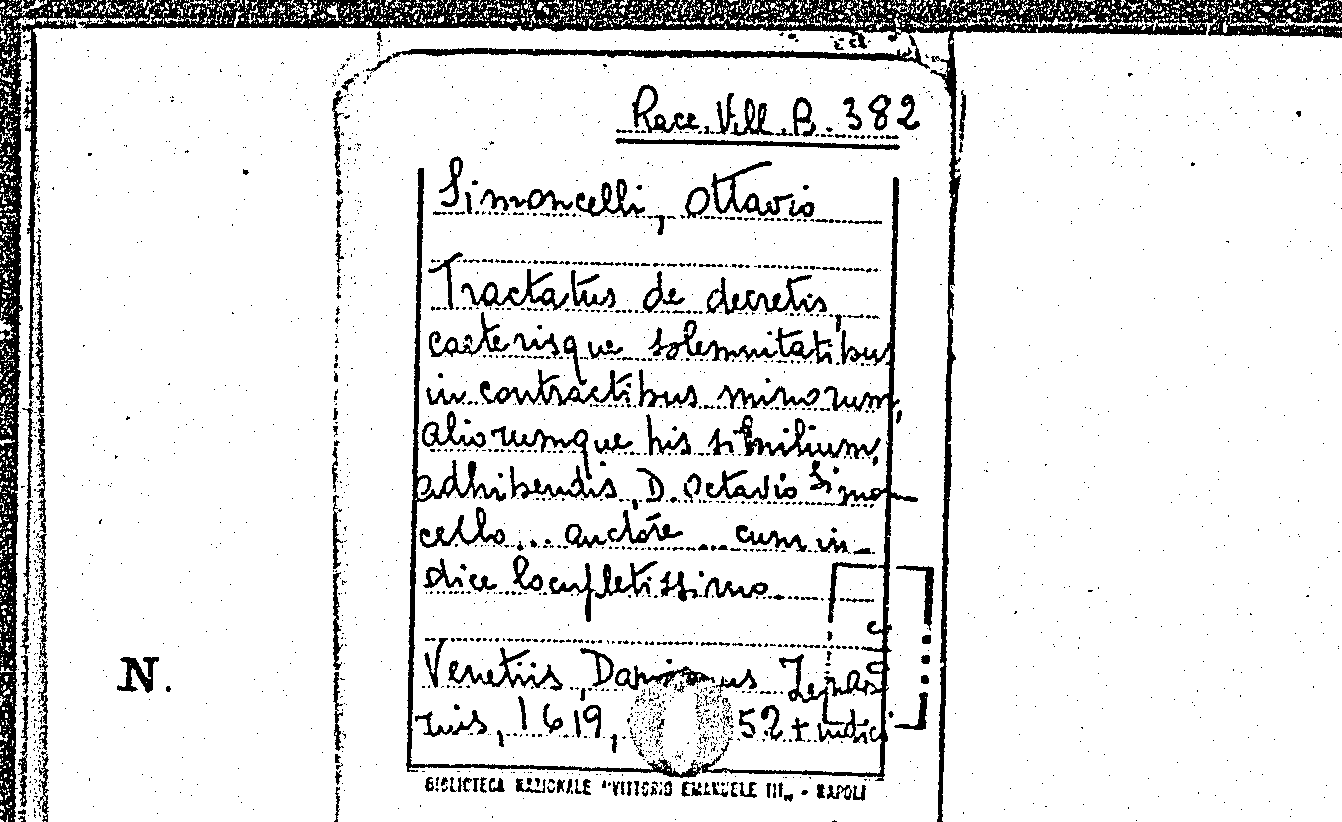 Race. Vill. B. 382
Simoncelli, Ottavio
Tractatus de decretis,
caeterisque solemnitatibus
in contractibus minorum,
aliorumque his similium,
adhibendis, D. Octavio Simo-
cello... auctore ... cum in-
dice locupletissimo.
Venetiis,
1619, 52 + indici
N.
BIBLIOTECA NAZIONALE "VITTORIO EMANUELE III" - NAPOLI